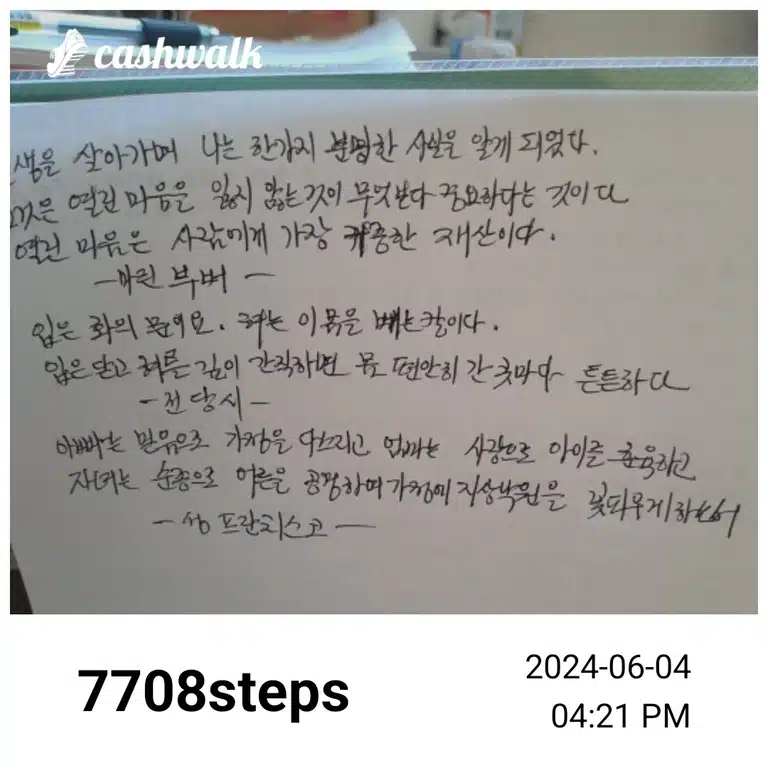 cashwalk
생을 살아가며 나는 한가지 분명한 사실을 알게 되었다.
것은 열린 마음을 잃지 않는것이 무엇보다 중요하다는 것이다
열린 마음은 사람에게 가장 귀중한 재산이다.
-마린 부버-
입은 화의 문이요. 혀는 이 몸을 베는칼이다.
입은 닫고 혀를 깊이 간직하면 몸 편안히 간 곳마다 튼튼하다
-전당시-
아빠는 믿음으로 가정을 다스리고 엄마는 사랑으로 아이를 훈육하고
자녀는 순종으로 어른을 공경하며 가정에 지상낙원을 꽃피우게
-성 프란치스코-
7708steps
2024-06-04
04:21 PM